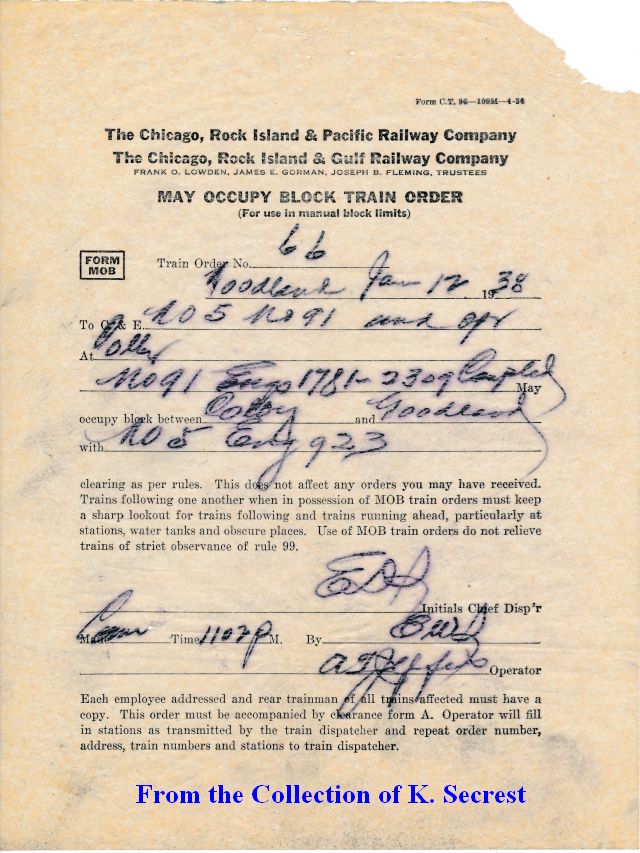 Form C.T. 96—109M—4-36
The Chicago, Rock Island & Pacific Railway Company
The Chicago, Rock Island & Gulf Railway Company
FRANK O. LOWDEN, JAMES E. GORMAN, JOSEPH B. FLEMING, TRUSTEES
MAY OCCUPY BLOCK TRAIN ORDER
(For use in manual block limits)
FORM
MOB
Train Order No. 66
Goodland Jan 12 1938
To C. & E. No 5 No 91 and opr
At Colby
No 91 Engs 1781-2309 Coupled May
occupy block between Colby and Goodland
with No 5 Eng 923
clearing as per rules. This does not affect any orders you may have received.
Trains following one another when in possession of MOB train orders must keep
a sharp lookout for trains following and trains running ahead, particularly at
stations, water tanks and obscure places. Use of MOB train orders do not relieve
trains of strict observance of rule 99.
Initials Chief Disp'r
Made Com Time 1102 P M. By
Operator
Each employee addressed and rear trainman of all trains affected must have a
copy. This order must be accompanied by clearance form A. Operator will fill
in stations as transmitted by the train dispatcher and repeat order number,
address, train numbers and stations to train dispatcher.
From the Collection of K. Secrest